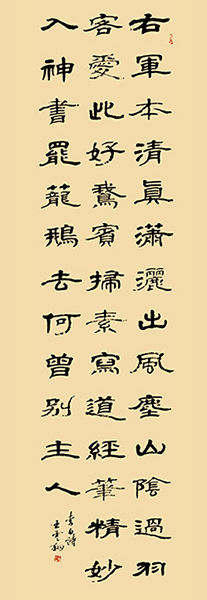 右軍本清眞瀟灑出風塵山陰過羽
客愛此好鵞賓掃素寫道經筆精妙
入神書罷籠鵝去何曾別主人
李白詩